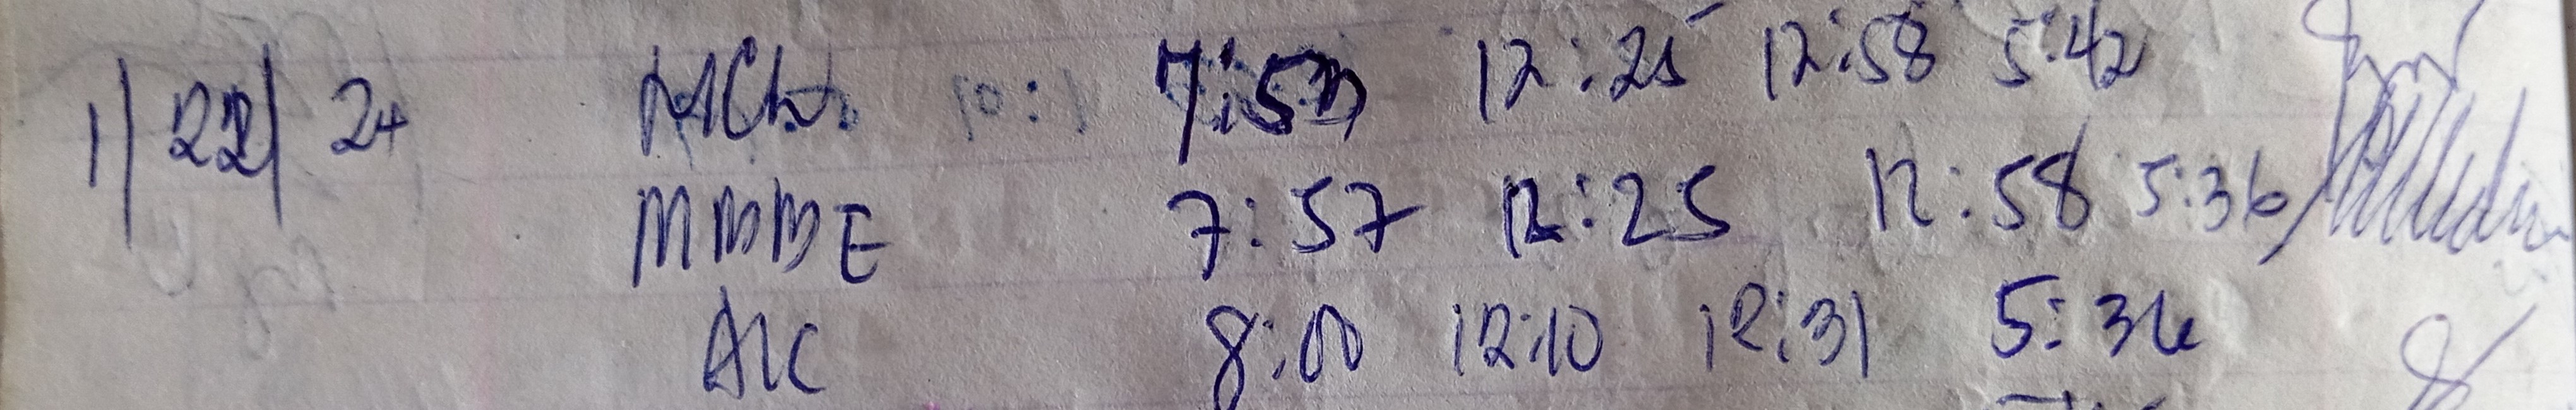 1/22/24 10:1 12:25 12:58 5:42
MBBE 7:57 12:25 12:58 5:36
AIC 8:00 12:10 12:31 5:36